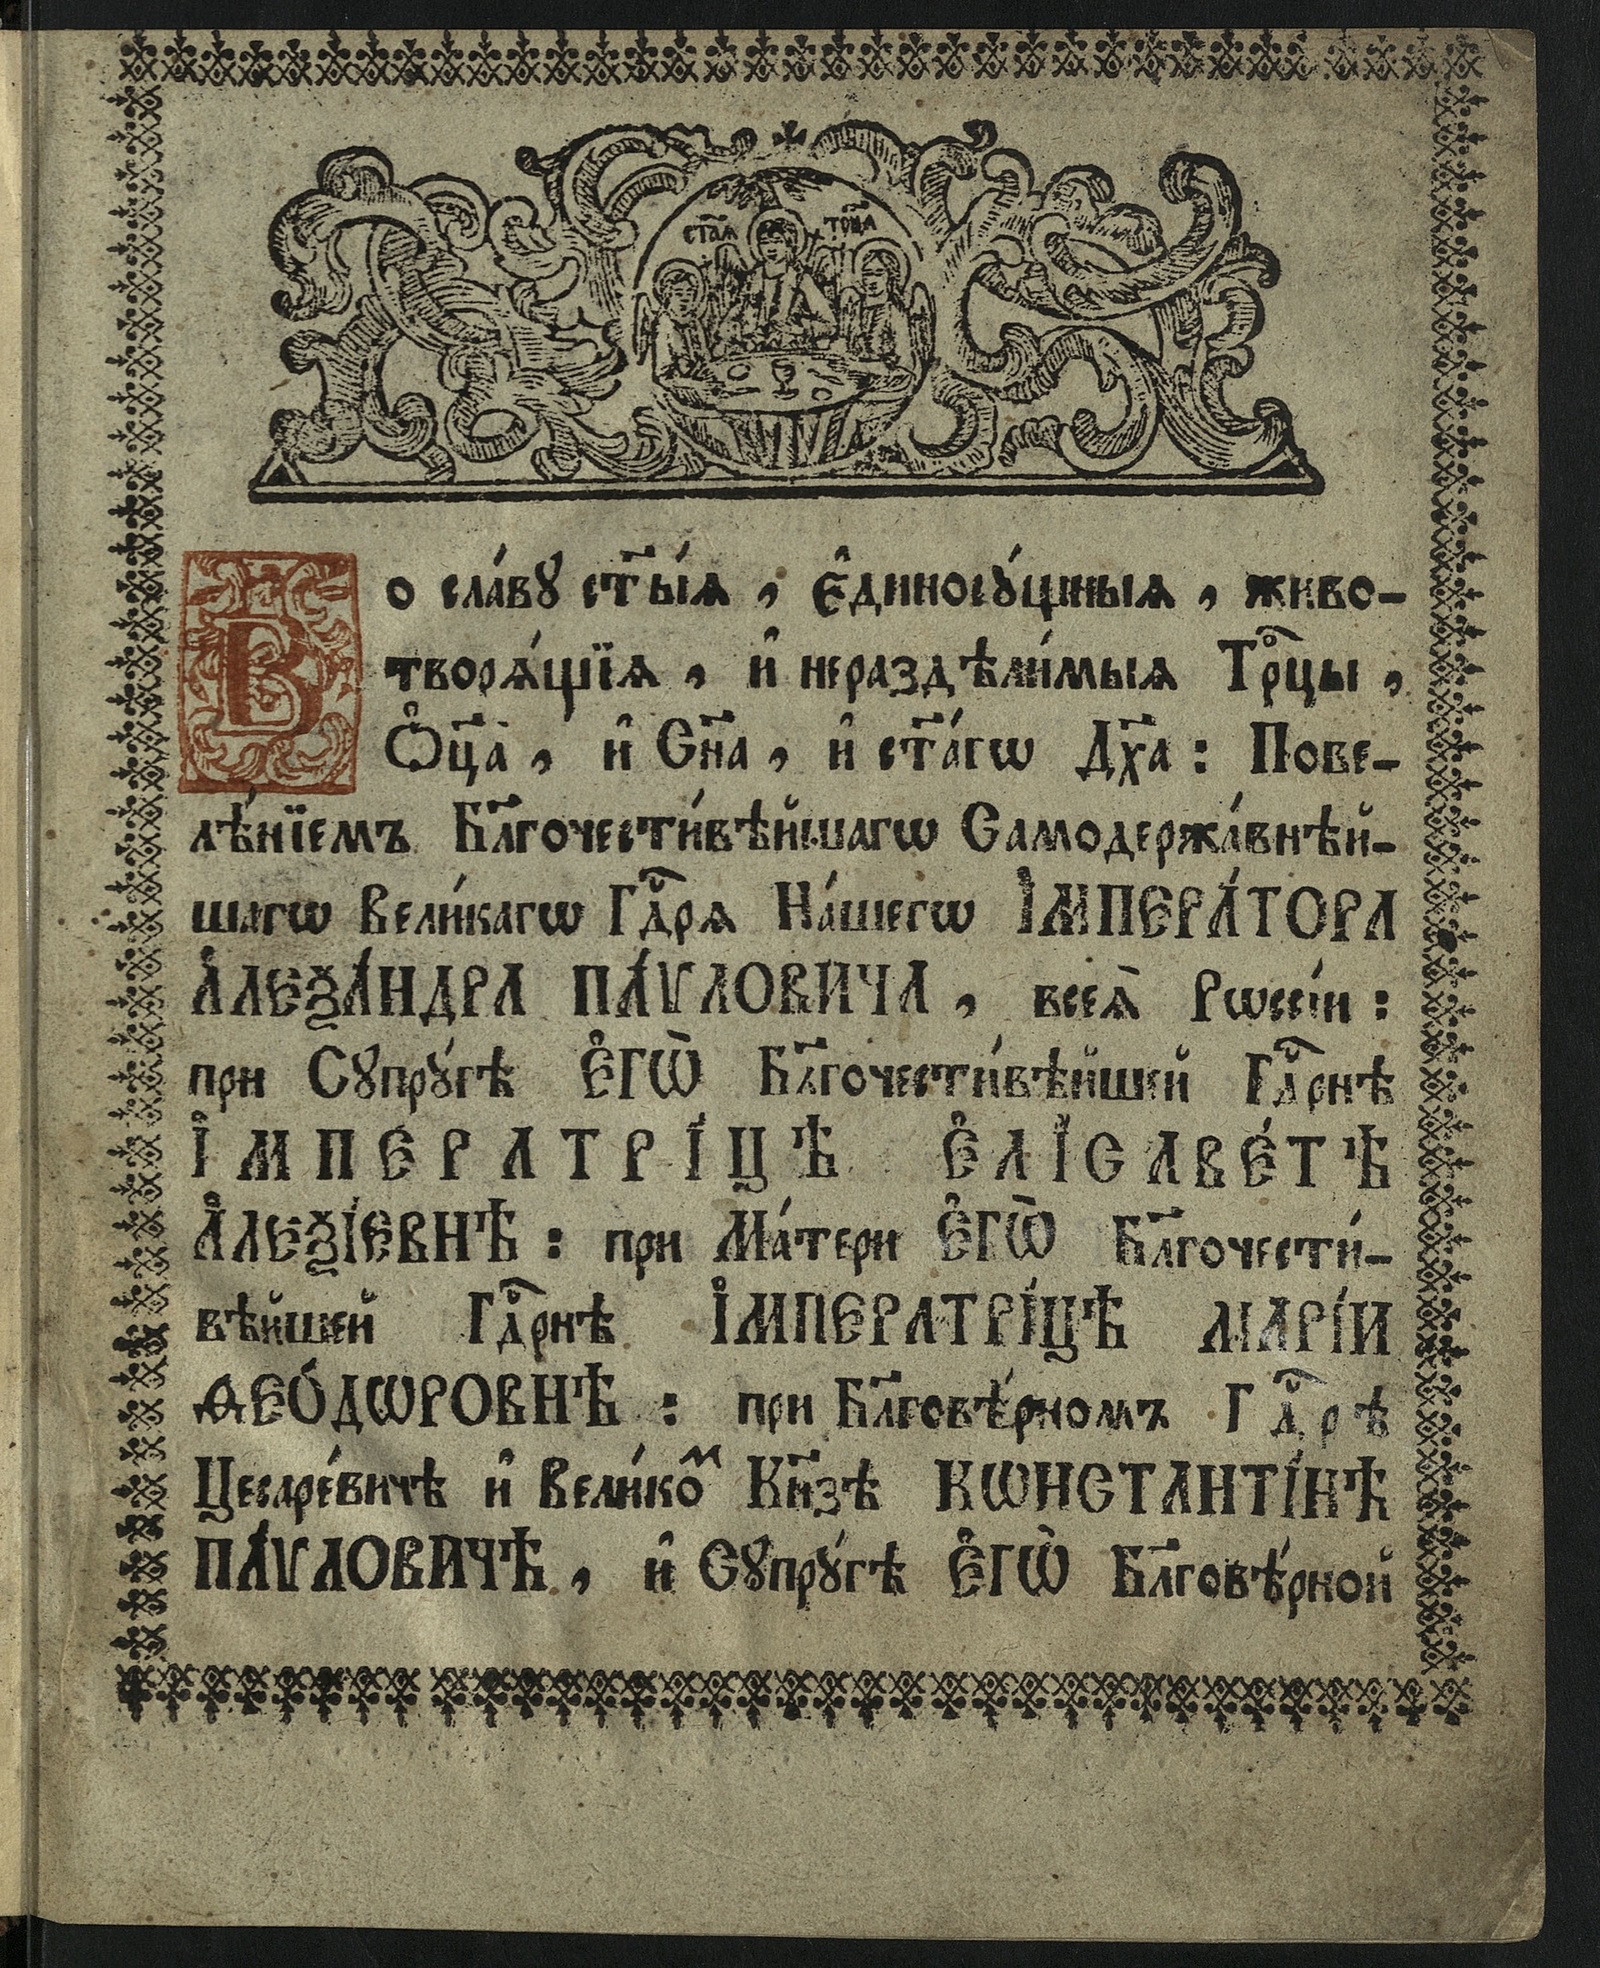 ст҃аѧ трⷪ҇ца
Во сла́вꙋ ст҃ы́ѧ , є҆динꙋсꙋ́щныѧ , живо-
творѧ́щїѧ , и҆ нераздѣли́мыѧ Трⷪ҇цы ,
Ѻ҆ц҃а̀ , и҆ Сн҃а , и҆ ст҃а́гѡ Дх҃а : Пове-
лѣ́нїемъ Бл҃гочести́вѣйшагѡ Самодержа́внѣй-
шагѡ Вели́кагѡ Гдⷭ҇рѧ На́шегѡ І҆МПЕРА́ТОРА
А҆ЛЕѮА́НДРА ПА́ѴЛОВИЧА , всеѧ̀ Рѡссі́и :
при Сꙋпрꙋ́гѣ Є҆ГѠ̀ Бл҃гочести́вѣйшей Гдⷭ҇рнѣ
І҆МПЕРАТРІ́ЦѢ Є҆ЛІСАВЕ́ТѢ
А҆ЛЕѮІ́ЕВНѢ : при Ма́тери Є҆ГѠ̀ Бл҃гочести́-
вѣйшей Гдⷭ҇рнѣ І҆МПЕРАТРІ́ЦѢ МАРІ́И
ѲЕО́ДѠРОВНѢ : при Бл҃говѣ́рномъ Гдⷭ҇рѣ
Цесаре́вичѣ и҆ Вели́коⷨ Кн҃зѣ КѠНСТАНТІ́НѢ
ПА́ѴЛОВИЧѢ , и҆ Сꙋпрꙋ́гѣ Є҆ГѠ̀ Бл҃говѣ́рной